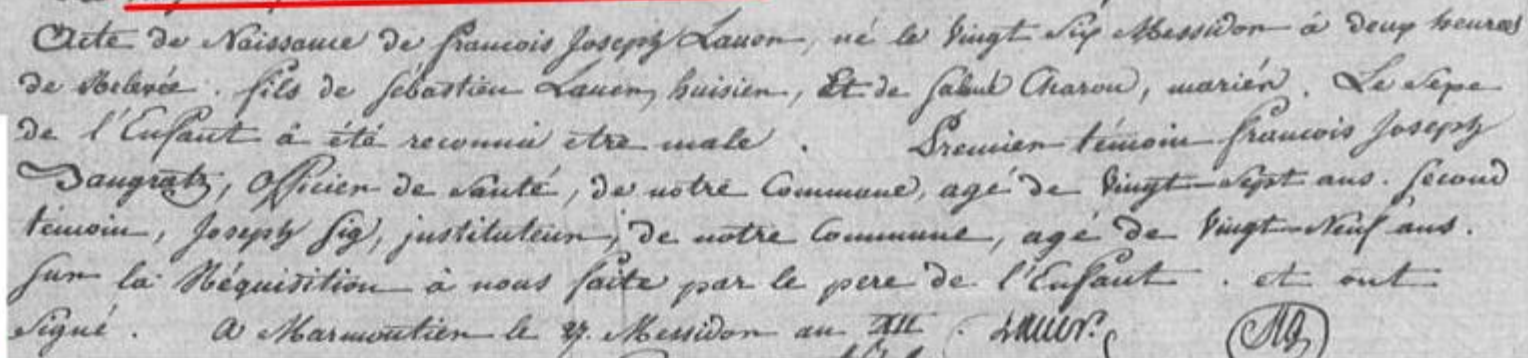 Acte de Naissance de francois Joseph Lauer, né le Vingt Six Messidor à deux heures
de Relevée. fils de Sébastien Lauer, huisier, Et de Salmé Charon, mariés. Le Sexe
de l'Enfant à été reconnu etre male. Premier témoin francois Joseph
Dangratz, Officier de Santé, de notre Commune, agé de Vingt-Sept ans. Second
témoin, Joseph Sig, jnstituteur, de notre Commune, agé de Vingt-Neuf ans.
Sur la Réquisition à nous faite par le pere de l'Enfant. et ont
Signé. A Marmoutier le 27. Messidor an XII. Lauer.